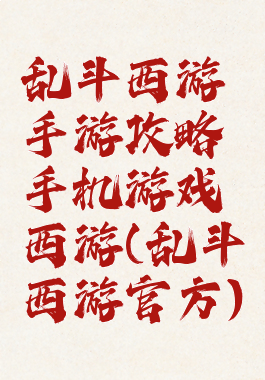 乱斗西游
手游攻略
手机游戏
西游(乱斗
西游官方)